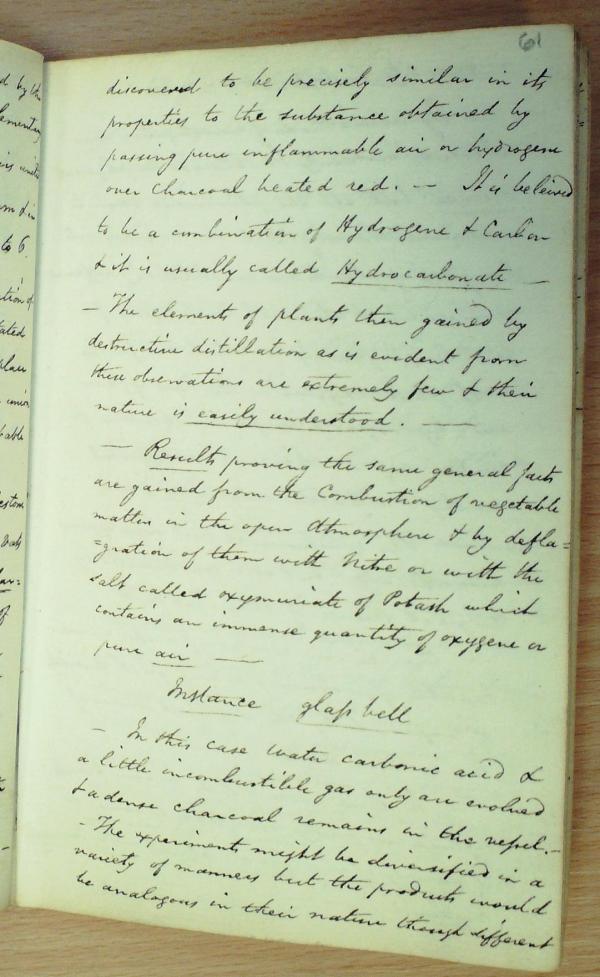 61
discovered to be precisely similar in its
properties to the substance obtained by
passing pure inflammable air or hydrogene
over charcoal heated red. — It is beleived
to be a combination of Hydrogene & Carbon
& it is usually called Hydrocarbonate —
— The elements of plants then gained by
destructive distillation as is evident from
these observations are extremely few & their
nature is easily understood. —
— Results proving the same general facts
are gained from the Combustion of vegetable
matter in the open Atmosphere & by defla=
=gration of them with Nitre or with the
salt called oxymuriate of Potash which
contains an immense quantity of oxygene or
pure air —
Instance glass bell
— In this case water carbonic acid &
a little incombustible gas only are evolved
& a dense charcoal remains in the vessel. —
- The experiments might be diversified in a
variety of manners but the products would
be analogous in their nature though different